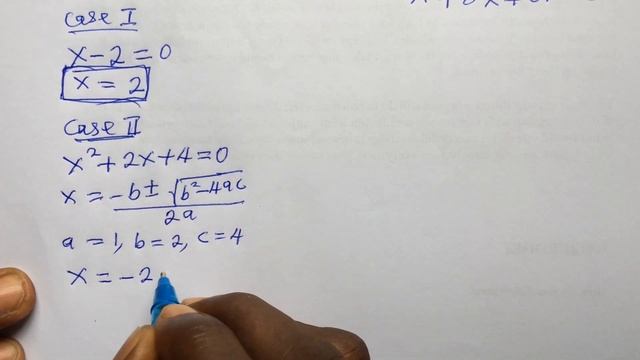 Case I
x - 2 = 0
x = 2
Case II
x² + 2x + 4 = 0
x = -b ± √(b² - 4ac) / 2a
a = 1, b = 2, c = 4
x = -2